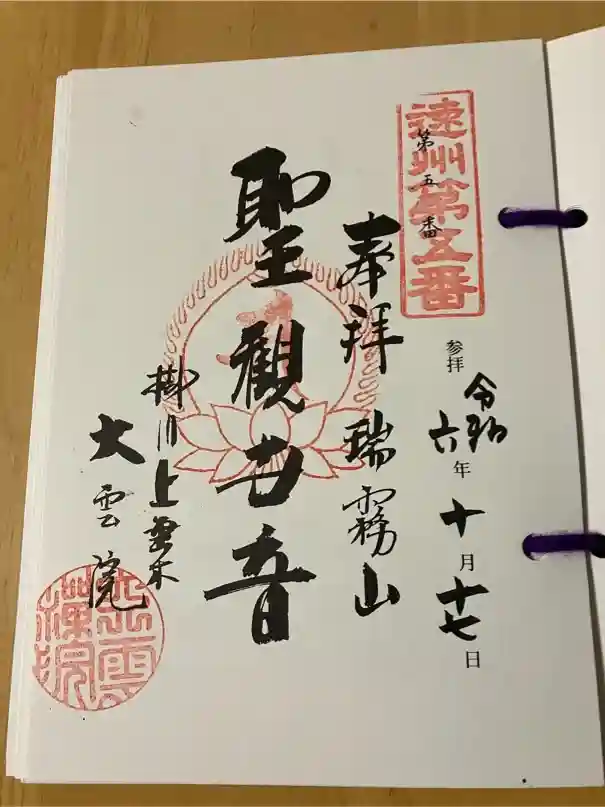 遠州第五番
第五番
参拝 令和六年十月十七日
奉拝 瑞霧山
聖観世音
掛川上垂木
大雲院